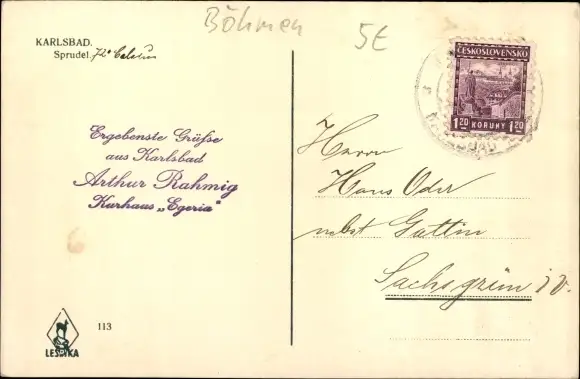 Böhmen
5€
KARLSBAD.
Sprudel. 72° Celsius
ČESKOSLOVENSKO
1.20 KORUNY 1.20
Ergebenste Grüße
aus Karlsbad
Arthur Rahmig
Kurhaus „Egeria“
Herrn
Hans Oder
nebst Gattin
Sachsgrün i V.
LESTKA
113